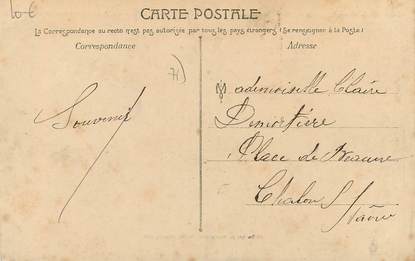 10 €
CARTE POSTALE
La Correspondance au recto n'est pas autorisée par tous les pays étrangers (Se renseigner à la Poste)
Correspondance
Adresse
Souvenir
Mademoiselle Claire
Place de Beaune
Chalon S/
Saône